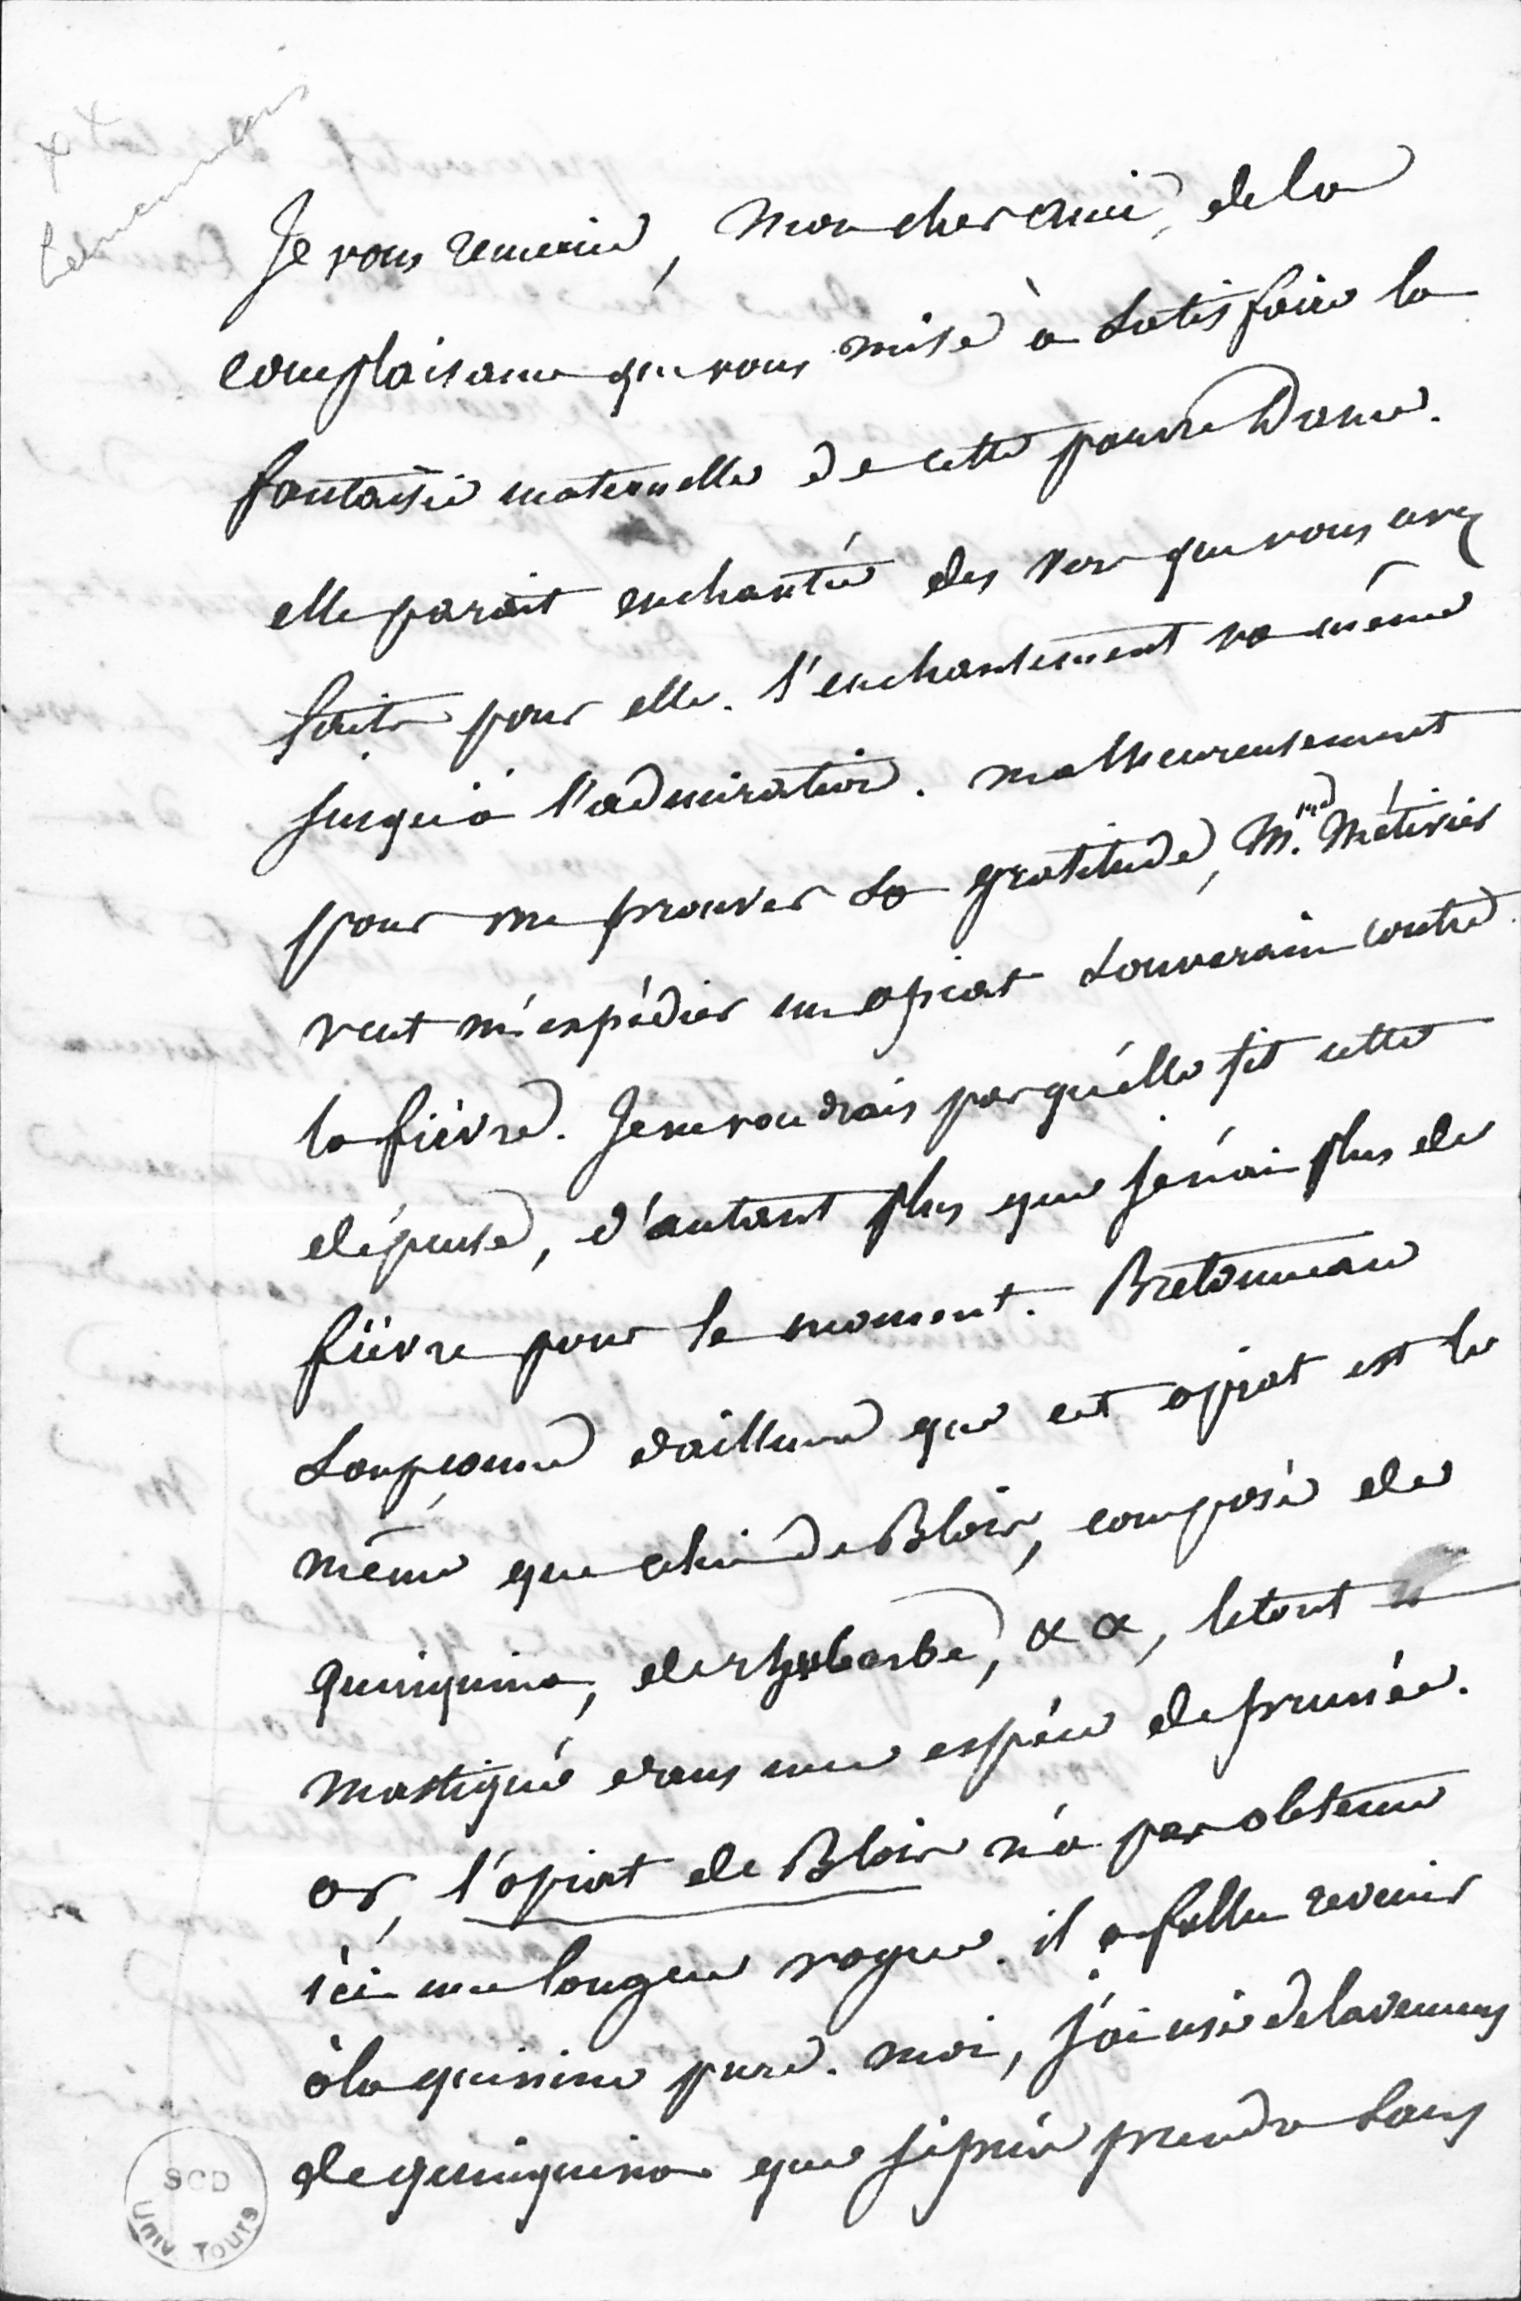 Je vous remercie, mon cher ami, de la
complaisance que vous mise à satisfaire la
fantaisie maternelle de cette pauvre Dame.
elle parait enchantée des vers que vous avez
faits pour elle. l'enchantement va même
jusqu'à l'admiration. malheureusement
pour me prouver sa gratitude, M.me Métivier
veut m'expédier un opiat souverain contre
la fièvre. Je ne voudrais pas qu'elle fit cette
dépense, d'autant plus que je n'ai plus de
fièvre pour le moment. Bretonneau
soupconne d'ailleurs que cet opiat est le
même que celui de Blois, composé de
quinquina, de rhubarbe, & &, le tout
mastiqué dans une espèce de prunée.
or, l'opiat de Blois n'a pas obtenu
ici une longue vogue. il a fallu revenir
à la quinine pure. moi, j'ai usé de la
de quinquina que je puis prendre sans
SCD
Univ. Tours